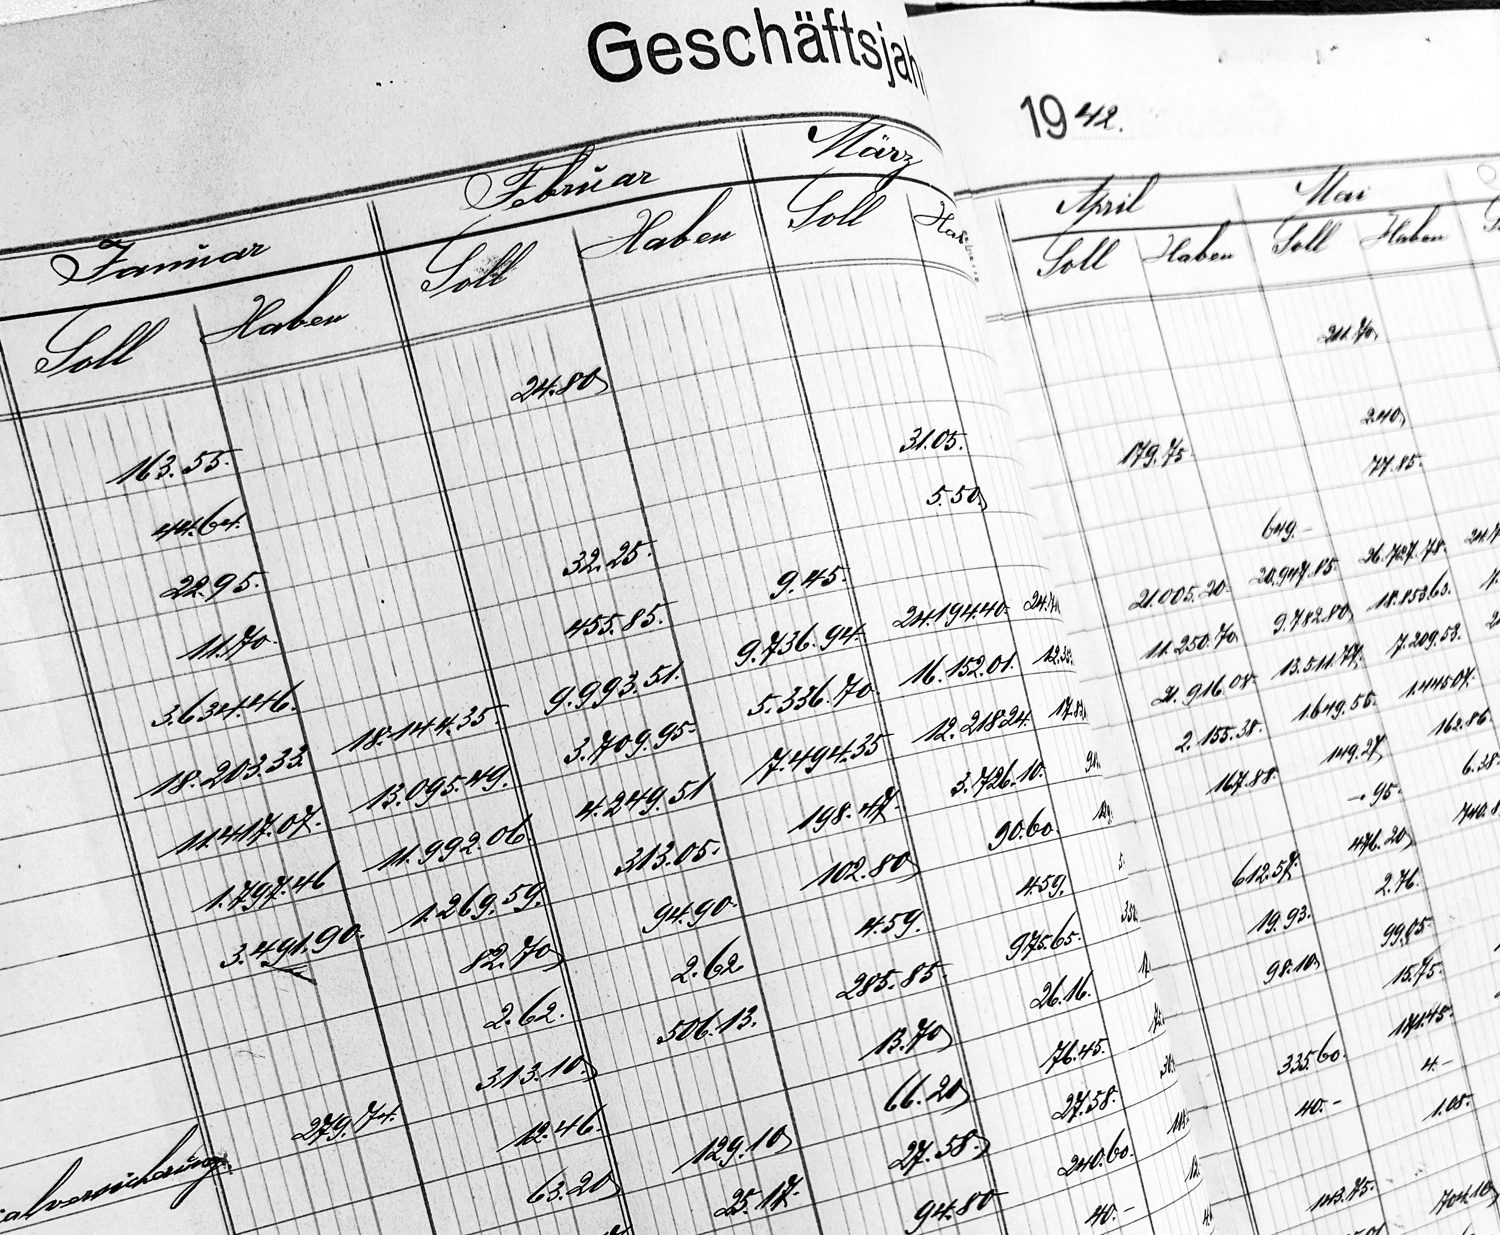 Geschäftsjah
1942.
Januar Februar März April Mai
Soll Haben Soll Haben Soll Soll Haben Soll Haben
24.80
163.55. 31.05. 179.75 2.40
44.64. 5.50 77.85.
22.95. 32.25. 9.45. 649.–
11.70. 455.85. 9.736.94. 24.194.40. 21.005.20. 20.947.85. 26.727.78.
3.634.46. 18.144.35. 9.993.51. 5.336.70 16.152.01. 11.250.70 9.782.80 18.853.63.
18.203.33. 13.095.49. 3.709.95. 7.494.35 12.218.24. 21.916.08. 13.511.77. 7.209.53.
11.417.07. 11.992.06. 4.249.51 198.47. 3.726.10. 2.155.38. 1.649.55. 1.445.07.
1.797.46 1.269.59. 313.05. 102.80 90.60. 167.88. 149.27 162.86.
3.491.90. 82.70 94.90. 4.59. 4.59. –.95. 6.38.
2.62. 2.62 285.85. 975.65. 612.57. 476.20
313.10. 506.13. 13.70 26.16. 19.93. 2.76.
279.74. 12.46. 66.20 76.45. 98.10 99.05.
63.20 129.10 27.58. 27.58. 15.75.
25.17. 94.80 240.60. 335.60. 171.45.
40.– 40.– 4.–
1.08.
143.75. 704.10